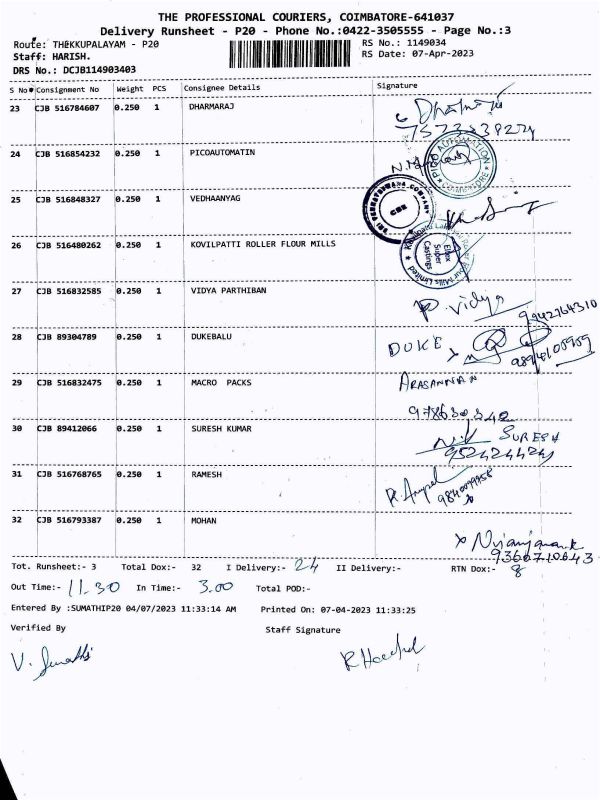 THE PROFESSIONAL COURIERS, COIMBATORE-641037
Delivery Runsheet - P20 - Phone No.:0422-3505555 - Page No.:3
Route: THEKKUPALAYAM - P20 RS No.: 1149034
Staff: HARISH. RS Date: 07-Apr-2023
DRS No.: DCJB114903403
S No Consignment No Weight PCS Consignee Details Signature
23 CJB 516784607 0.250 1 DHARMARAJ
24 CJB 516854232 0.250 1 PICOAUTOMATIN
25 CJB 516848327 0.250 1 VEDHAANYAG
26 CJB 516480262 0.250 1 KOVILPATTI ROLLER FLOUR MILLS
Elex Super Castings
27 CJB 516832585 0.250 1 VIDYA PARTHIBAN
P. Vidya
9942764310
28 CJB 89304789 0.250 1 DUKEBALU
DUKE
29 CJB 516832475 0.250 1 MACRO PACKS
30 CJB 89412066 0.250 1 SURESH KUMAR
SURESH
31 CJB 516768765 0.250 1 RAMESH
32 CJB 516793387 0.250 1 MOHAN
9360710643
Tot. Runsheet:- 3 Total Dox:- 32 I Delivery:- 24 II Delivery:- RTN Dox:- 8
Out Time:- 11.30 In Time:- 3.00 Total POD:-
Entered By :SUMATHIP20 04/07/2023 11:33:14 AM Printed On: 07-04-2023 11:33:25
Verified By Staff Signature